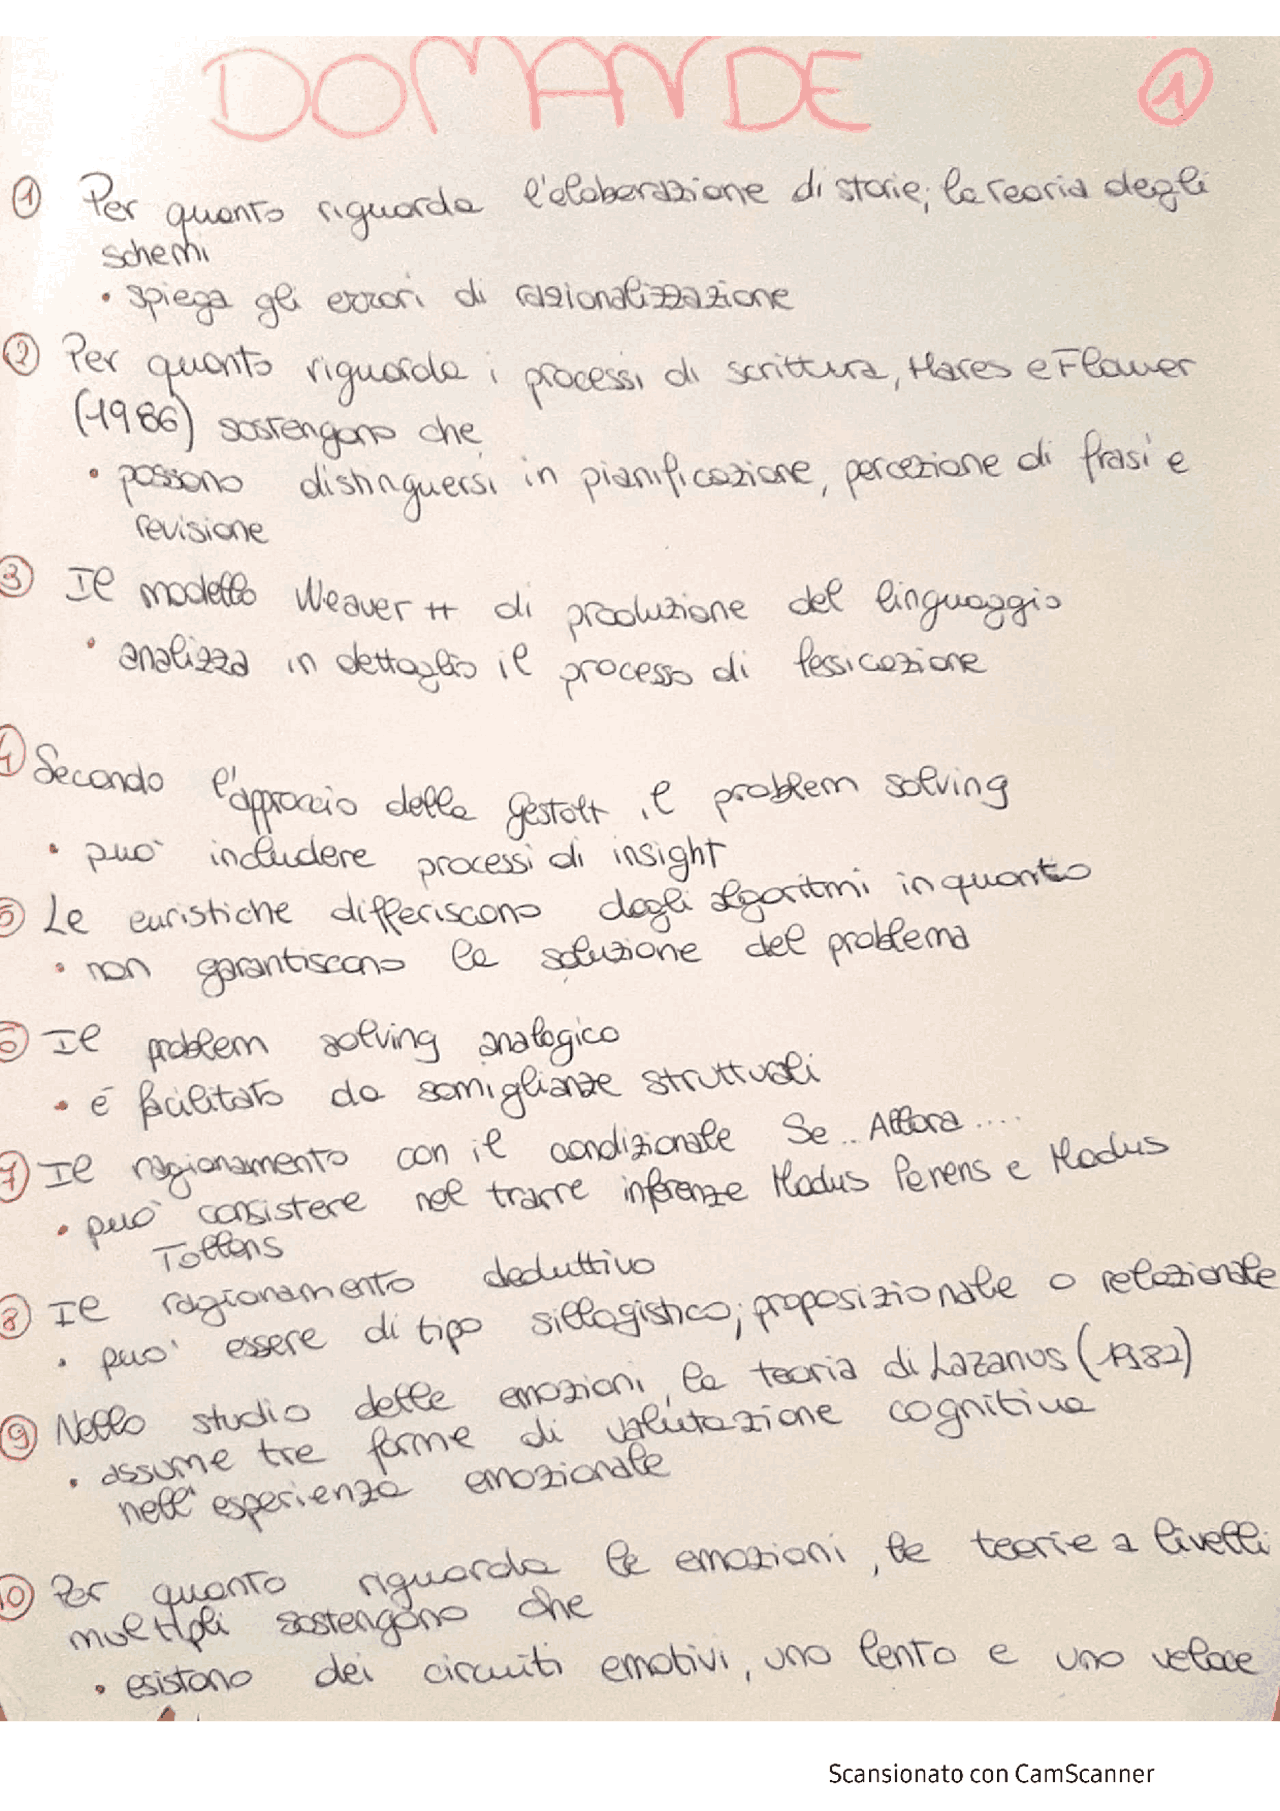 DOMANDE 1
1 Per quanto riguarda l'elaborazione di storie, la teoria degli
schemi
• spiega gli errori di razionalizzazione
2 Per quanto riguarda i processi di scrittura, Hares e Flower
(1986) sostengono che
• possono distinguersi in pianificazione, percezione di frasi e
revisione
3 Il modello Weaver ++ di produzione del linguaggio
• analizza in dettaglio il processo di lessicazione
4 Secondo l'approccio della Gestalt il problem solving
• può includere processi di insight
5 Le euristiche differiscono dagli algoritmi in quanto
• non garantiscono la soluzione del problema
6 Il problem solving analogico
• è facilitato da somiglianze strutturali
7 Il ragionamento con il condizionale Se.. Allora ....
• può consistere nel trarre inferenze Modus Penens e Modus
Tollens
8 Il ragionamento deduttivo
• può essere di tipo sillogistico, proposizionale o relazionale
9 Nello studio delle emozioni, la teoria di Lazanus (1982)
• assume tre forme di valutazione cognitiva
nell'esperienza emozionale
10 Per quanto riguarda le emozioni, le teorie a livelli
multipli sostengono che
• esistono dei circuiti emotivi, uno lento e uno veloce
Scansionato con CamScanner